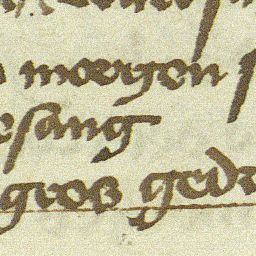 morgen
esang
groß gedr